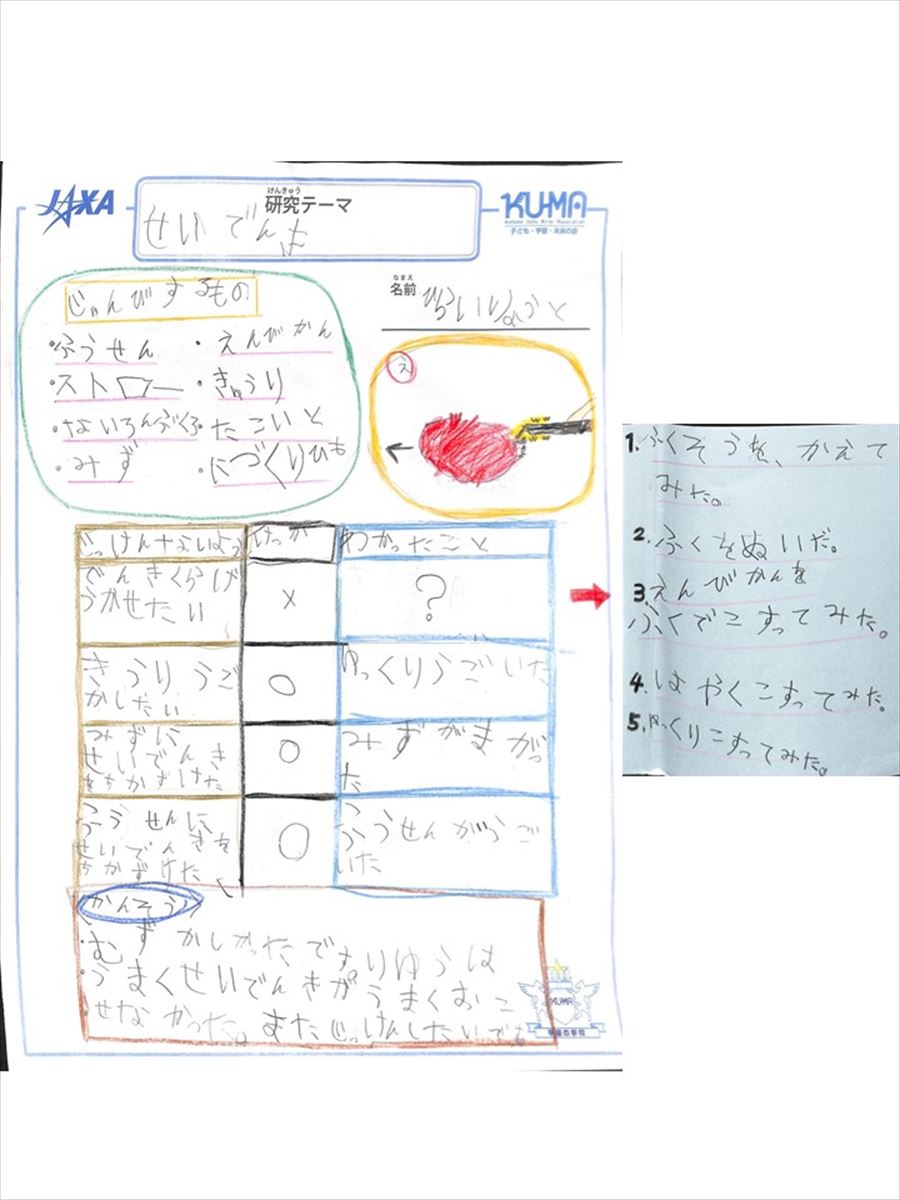 JAXA
けんきゅう
研究テーマ
せいでんき
KU-MA
子ども・宇宙・未来の会
じゅんびするもの
・ふうせん ・えんびかん
・ストロー ・きゅうり
・ないろんぶくろ ・たこいと
・みず ・にづくりひも
なまえ
名前
え
じっけんないよう けっか わかったこと
でんきくらげ
うかせたい
×
?
きうりうご
かしたい
○
ゆっくりうごいた
みずに
せいでんき
をちかずけた
○
みずがまがっ
た
ふうせんに
せいでんきを
ちかずけた
○
ふうせんがうご
いた
かんそう
・むずかしかったです。りゆうは
うまくせいでんきがうまくおこ
せなかった。またじっけんしたいです
KUMA
宇宙の学校
1.ふくそうを、かえて
みた。
2.ふくをぬいだ。
3.えんびかんを
ふくでこすってみた。
4.はやくこすってみた。
5.ゆっくりこすってみた。